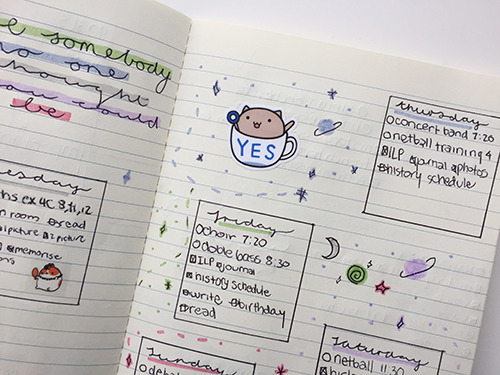 be somebody
no one
thought
you could
be
esday
ths ex 4C 8,11,12
n room read
picture picture
memorise
YES
thursday
concert band 7:20
netball training 4
ILP journal photos
history schedule
friday
choir 7:20
doble bass 8:30
ILP journal
history schedule
write birthday
read
Saturday
netball 11:30
Sunday